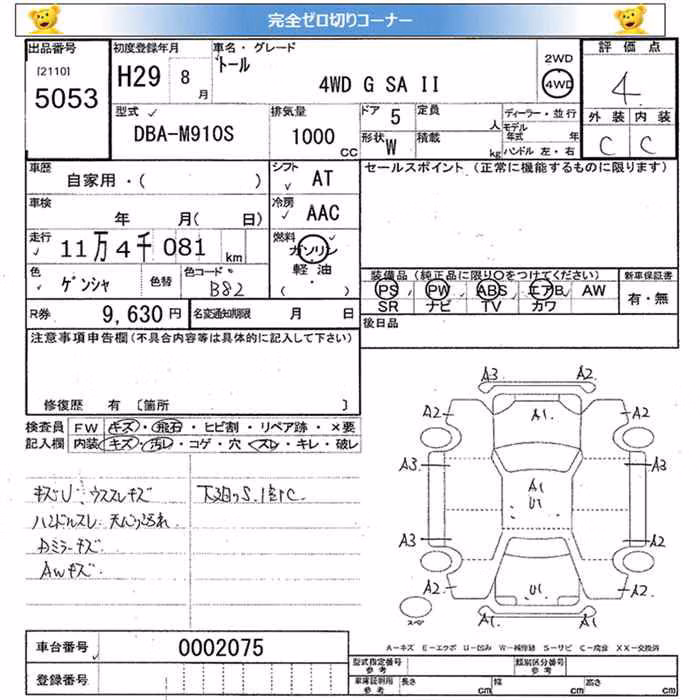 完全ゼロ切りコーナー
出品番号 初度登録年月 車名・グレード 評価点
[2110] 5053 H29 8月 トール 4WD G SA II 2WD 4WD 4
型式 DBA-M910S 排気量 1000 CC ドア 5 定員 人 ディーラー・並行 外装 内装
形状 W 積載 kg モデル年式 年 ハンドル 左・右 C C
車歴 自家用・( ) シフト AT セールスポイント(正常に機能するものに限ります)
車検 年 月( 日) 冷房 AAC
走行 11万4千081 km 燃料 ガソリン 軽油 ( )
色 ゲンシャ 色替 色コード B82 装備品(純正品に限り○をつけてください) 新車保証書
PS PW ABS エアB AW 有・無
SR ナビ TV カワ
R券 9,630円 名変通知期限 月 日 後日品
注意事項申告欄(不具合内容等は具体的に記入して下さい)
修復歴 有 〔箇所 〕
検査員 FW キズ・飛石・ヒビ割・リペア跡・×要
記入欄 内装 キズ・汚レ・コゲ・穴・スレ・キレ・破レ
キズU ウススレキズ 下廻りS.1部C
ハンドルスレ 天心り汚れ
Dミラーキズ
AWキズ
A3 A2
A2 A1 A2
A3 A3
A1
U1
A3 A3
A2 U1 A2
スペア A1 A2
A−キズ E−エクボ U−凹み W−補修跡 S−サビ C−腐食 XX−交換済
車台番号 0002075
登録番号
型式指定番号 参考 類別区分番号 参考
車庫証明用 参考 長さ cm 幅 cm 高さ cm